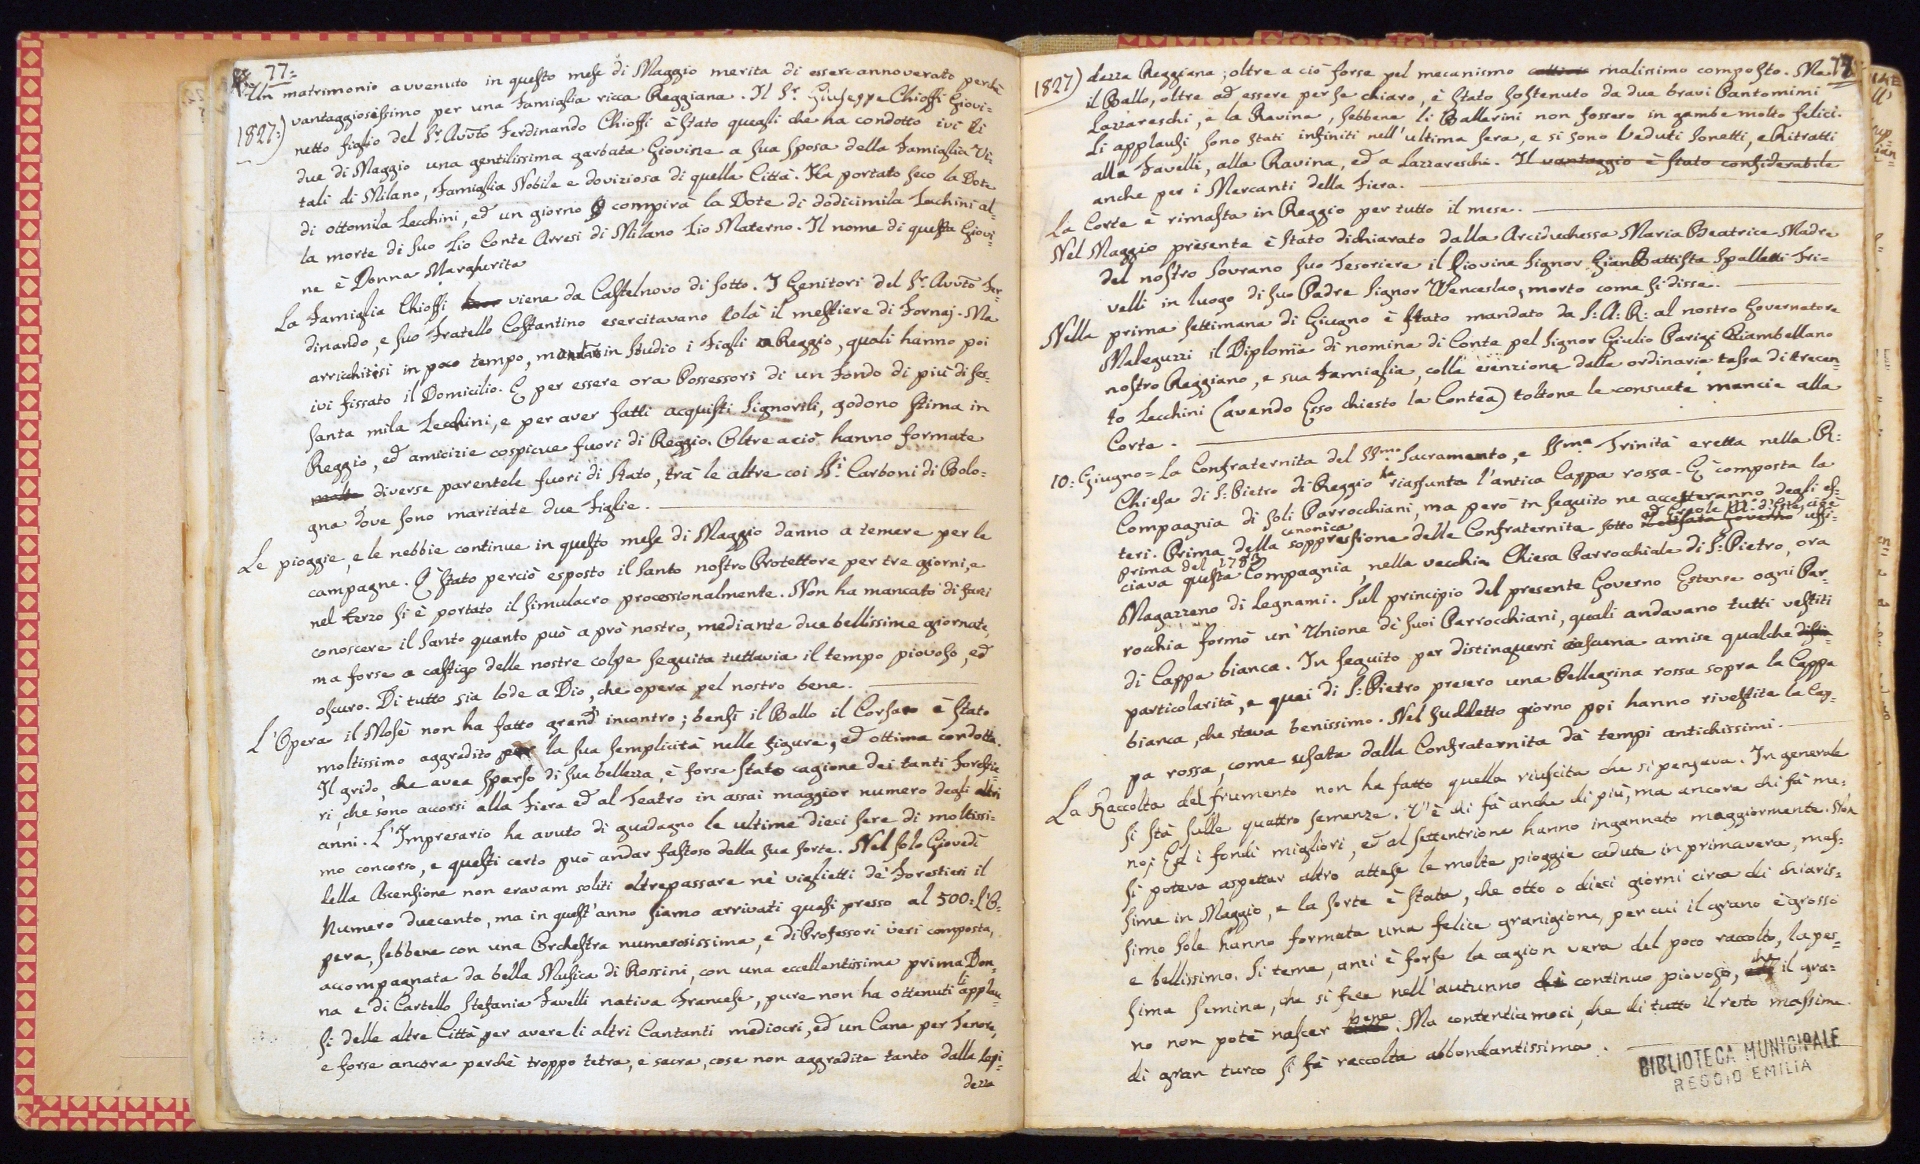 77=
Un matrimonio avvenuto in questo mese di Maggio merita di essere annoverato perchè
1827=) vantaggiosissimo per una Famiglia ricca Reggiana. Il Sr. Giuseppe Chioffi Giovi-
netto figlio del Sr. Avvto Ferdinando Chioffi è stato quegli che ha condotto ivi li
due di Maggio una gentilissima garbata Giovine a sua sposa della Famiglia Vi,
tali di Milano, Famiglia Nobile e doviziosa di quella Città. Ha portato seco la Dote
di ottomila Zecchini, ed un giorno compirà la Dote di dodicimila Zecchini al-
la morte di suo Zio Conte Arresi di Milano Zio Materno. Il nome di questa Giovi-
ne è Donna Margherita
La Famiglia Chioffi viene da Castelnovo di sotto. I Genitori del Sr. Avvto Fer-
dinando, e suo Fratello Costantino esercitavano colà il mestiere di Fornaj. Ma
arricchitisi in poco tempo, mandato in Studio i Figli a Reggio, quali hanno poi
ivi fissato il Domicilio. E per essere ora Possessori di un Fondo di più di ses-
santa mila Zecchini, e per aver fatti acquisti Signorili, godono stima in
Reggio, ed amicizie cospicue fuori di Reggio. Oltre a ciò hanno formate
diverse parentele fuori di Stato, trà le altre coi Sri. Carboni di Bolo-
gna dove sono maritate due Figlie.
Le pioggie, e le nebbie continue in questo mese di Maggio danno a temere per le
campagne. È stato perciò esposto il Santo nostro Protettore per tre giorni, e
nel terzo si è portato il Simulacro processionalmente. Non ha mancato di farci
conoscere il Santo quanto può a prò nostro, mediante due bellissime giornate,
ma forse a castigo delle nostre colpe seguita tuttavia il tempo piovoso, ed
oscuro. Di tutto sia lode a Dio, che opera pel nostro bene.
L'Opera il Mosè non ha fatto grand' incontro; bensì il Ballo il Corsaro è stato
moltissimo aggradito per la sua semplicità nelle figure, ed ottima condotta.
Il grido, che avea sparso di sua bellezza, è forse stato cagione dei tanti Forestie-
ri, che sono accorsi alla Fiera ed al Teatro in assai maggior numero degli altri
anni. L'Impresario ha avuto di guadagno le ultime dieci sere di moltissi-
mo concorso, e questi certo può andar fastoso della sua sorte. Nel solo Giovedì
della Ascensione non eravam soliti oltrepassare nè viglietti de' Forestieri il
Numero duecento, ma in quest'anno siamo arrivati quasi presso al 500: L'O-
pera, sebbene con una Orchestra numerosissima, e di Professori veri composta,
accompagnata da bella Musica di Rossini, con una eccellentissima prima Don-
na e di Cartello Stefania Favelli nativa Francese, pure non ha ottenuti li applau-
si delle altre Città per avere li altri Cantanti mediocri, ed un Cane per Tenore,
e forse ancora perchè troppo tetra, e sacra, cose non aggradite tanto dalla Lapi-
dezza
78
1827) dezza Reggiana; oltre a ciò forse pel mecanismo malissimo composto. Ma
il Ballo, oltre ad essere per se chiaro, è stato sostenuto da due bravi Pantomimi
Lazzareschi, e la Ravina, sebbene li Ballerini non fossero in gambe molto felici.
Li applausi, sono stati infiniti nell'ultima sera, e si sono veduti Sonetti, e Ritratti
alla Favelli, alla Ravina, ed a Lazzareschi. Il vantaggio è stato considerabile
anche per i Mercanti della Fiera.
La Corte è rimasta in Reggio per tutto il mese.
Nel Maggio presente è stato dichiarato dalla Arciduchessa Maria Beatrice Madre
del nostro Sovrano suo Tesoriere il Giovine Signor GianBattista Spalletti Tri-
velli in luogo di suo Padre Signor Wenceslao, morto come si disse.
Nella prima settimana di Giugno è stato mandato da S: A: R: al nostro Governatore
Maleguzzi il Diploma di nomina di Conte pel Signor Giulio Parigi Ciambellano
nostro Reggiano, e sua Famiglia, colla esenzione dalle ordinaria tassa di trecen-
to Zecchini (avendo Esso chiesto la Contea) toltone le consuete mancie alla
Corte.
10: Giugno = La Confraternita del SSmo. Sacramento, e SSma. Trinità eretta nella R:
Chiesa di S: Pietro di Reggio ha riassunta l'antica Cappa rossa. È composta la
Compagnia di soli Parrocchiani, ma però in seguito ne accetteranno degli es-
teri. Prima della canonica soppressione delle Confraternite sotto Ercole III. d'Este, cioè
prima del 1783
uffi-
ciava questa Compagnia, nella vecchia Chiesa Parrocchiale di S: Pietro, ora
Magazzeno di Legnami. Sul principio del presente Governo Estense ogni Par-
rocchia formò un' Unione di suoi Parrocchiani, quali andavano tutti vestiti
di Cappa bianca. In seguito per distinguersi ciascuna amise qualche
particolarità, e quei di S: Pietro presero una Pellegrina rossa sopra la Cappa
bianca, che stava benissimo. Nel suddetto giorno poi hanno rivestite la Cap-
pa rossa, come usata dalla Confraternita dà tempi antichissimi.
La Raccolta del frumento non ha fatto quella riuscita che si pensava. In generale
si stà sulle quattro semenze. V'è chi fà anche di più, ma ancora chi fà me-
no; Ed i fondi migliori, ed al settentrione hanno ingannato maggiormente. Non
si poteva aspettar altro attese le molte pioggie cadute in primavera, mas-
sime in Maggio, e la sorte è stata, che otto o dieci giorni circa di chiaris-
simo sole hanno formata una felice granigione, per cui il grano è grosso
e bellissimo. Si teme, anzi è forse la cagion vera del poco raccolto, la pes-
sima semina, che si fece nell'autunno continuo piovoso, che il gra-
no non potè nascer bene. Ma contentiamoci, che di tutto il resto massime
di gran turco si fà raccolta abbondantissima.
BIBLIOTECA MUNICIPALE
REGGIO EMILIA